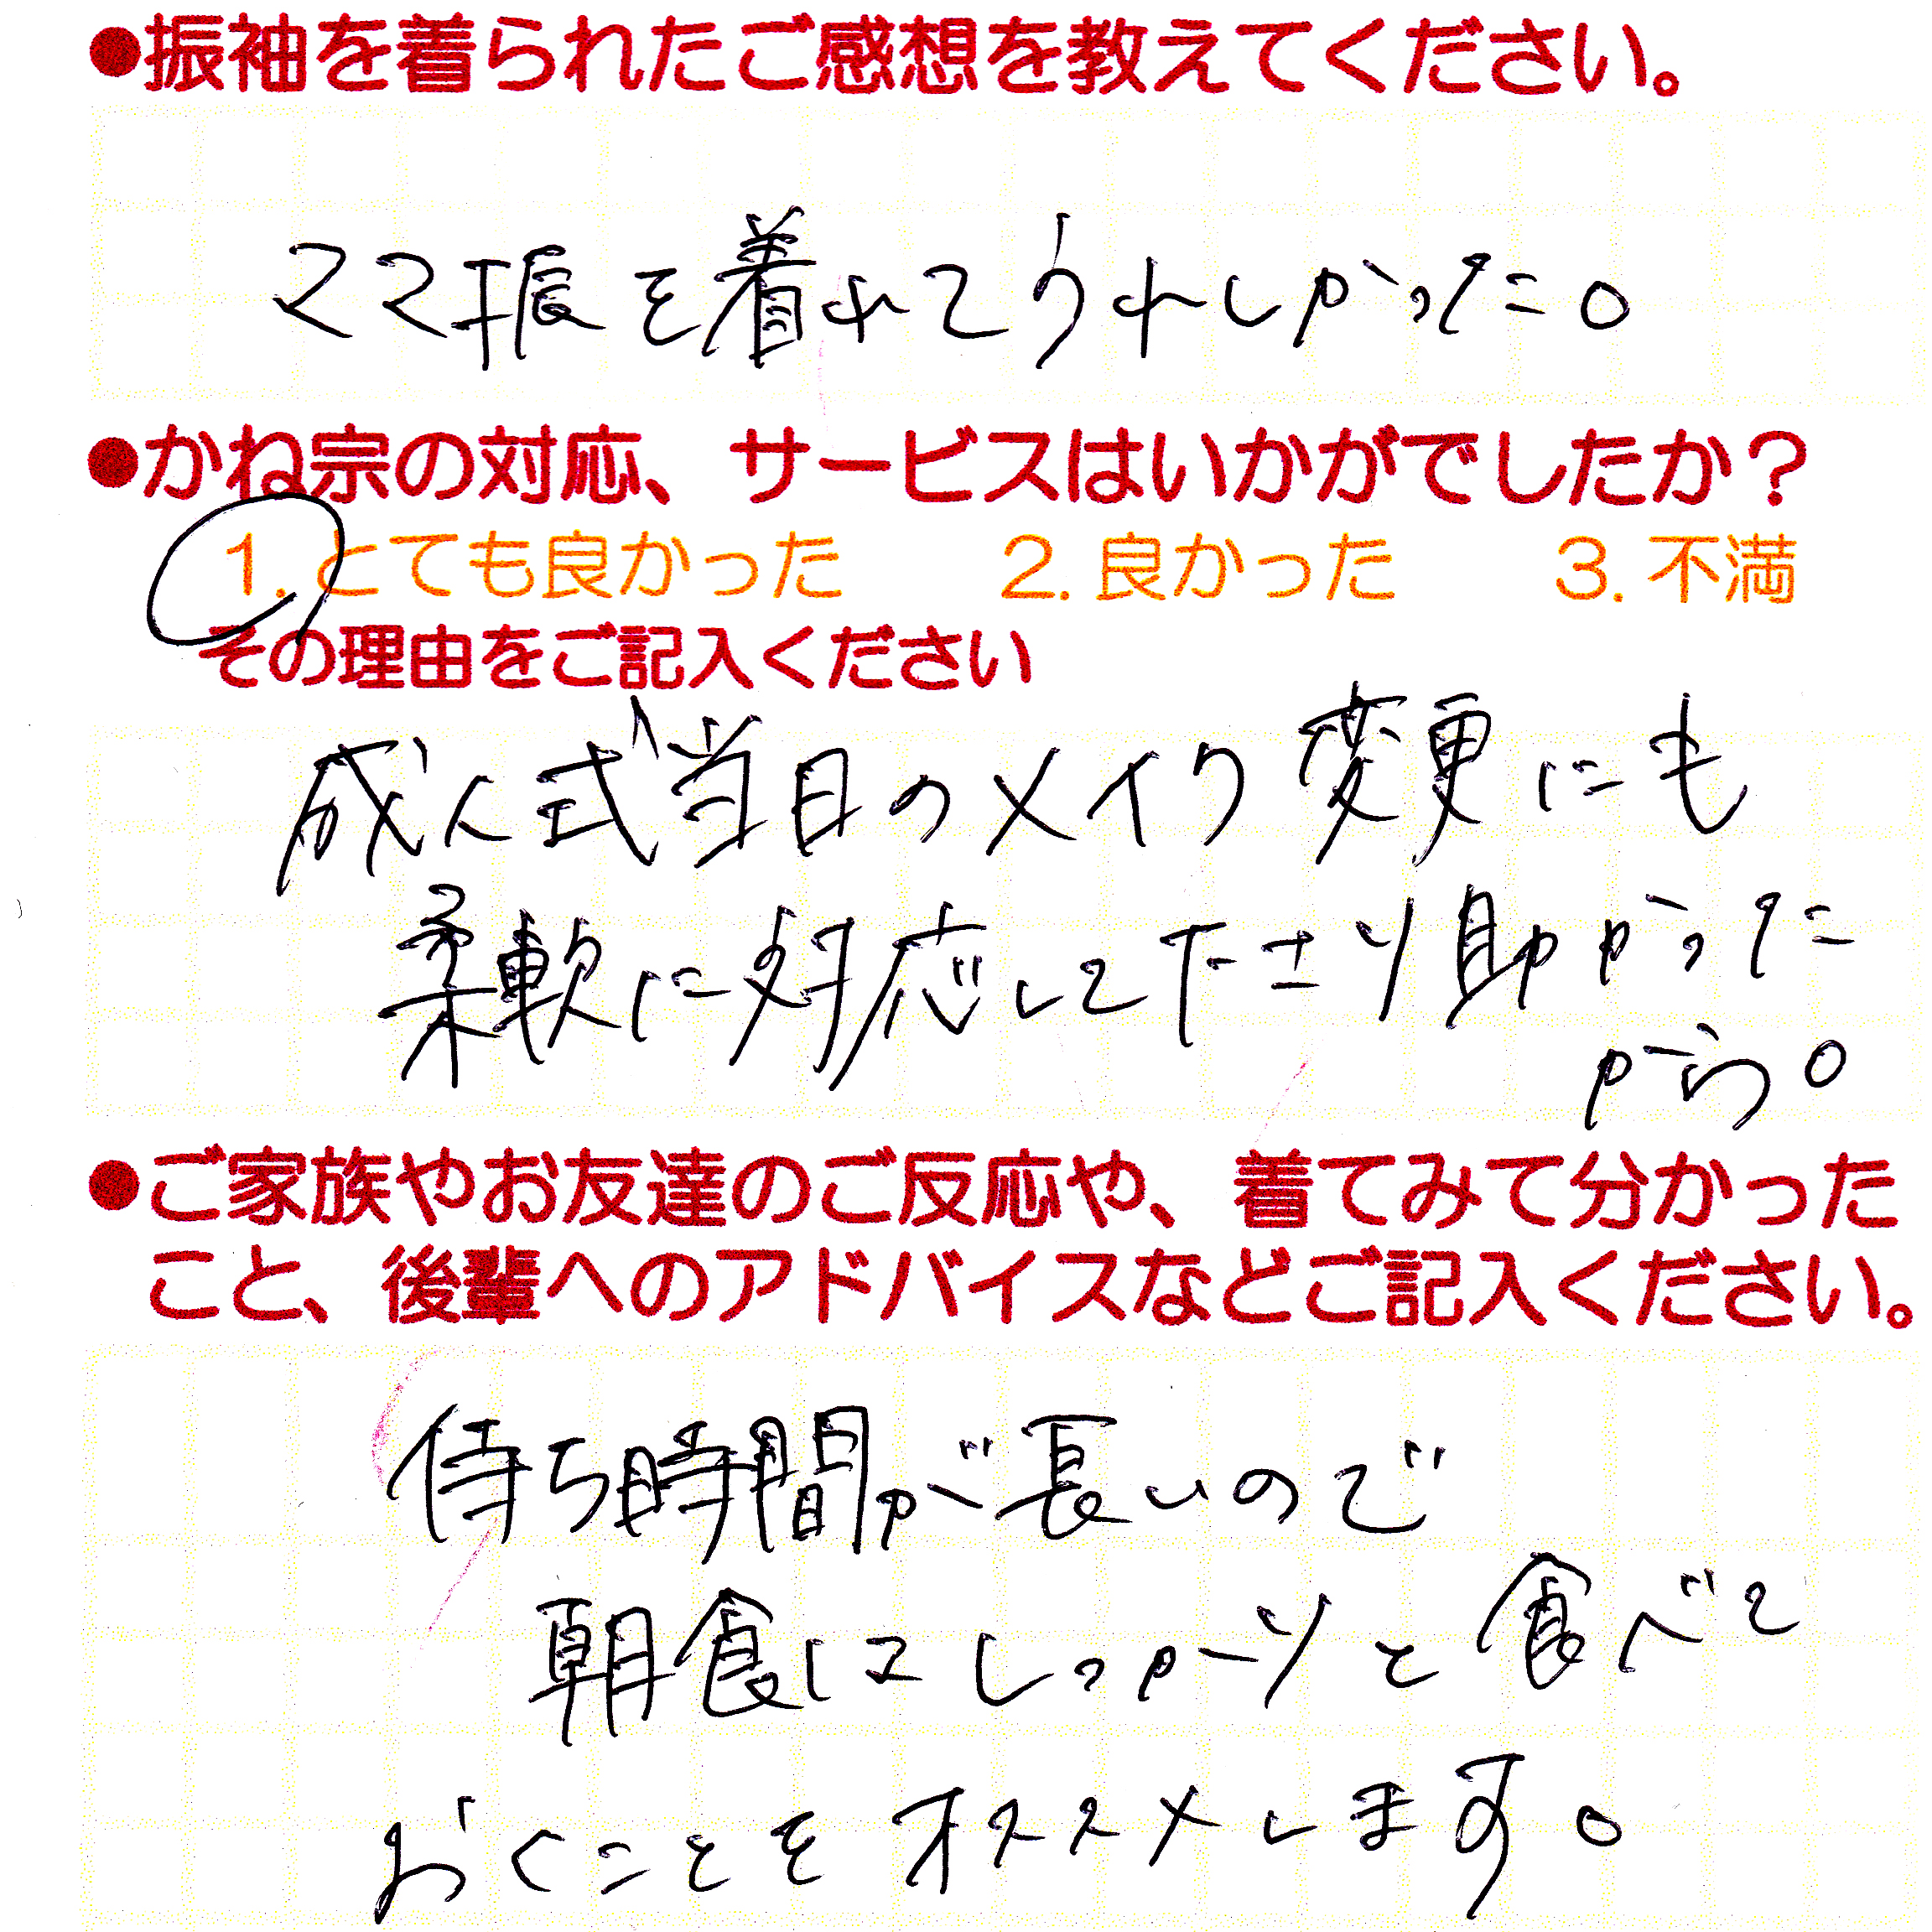 ●振袖を着られたご感想を教えてください。
ママ振を着れてうれしかった。
●かね宗の対応、サービスはいかがでしたか？
1. とても良かった 2. 良かった 3. 不満
その理由をご記入ください
成人式当日のメイク変更にも
柔軟に対応して下さり助かった
から。
●ご家族やお友達のご反応や、着てみて分かった
こと、後輩へのアドバイスなどご記入ください。
待ち時間が長いので
朝食はしっかりと食べて
おくことをオススメします。